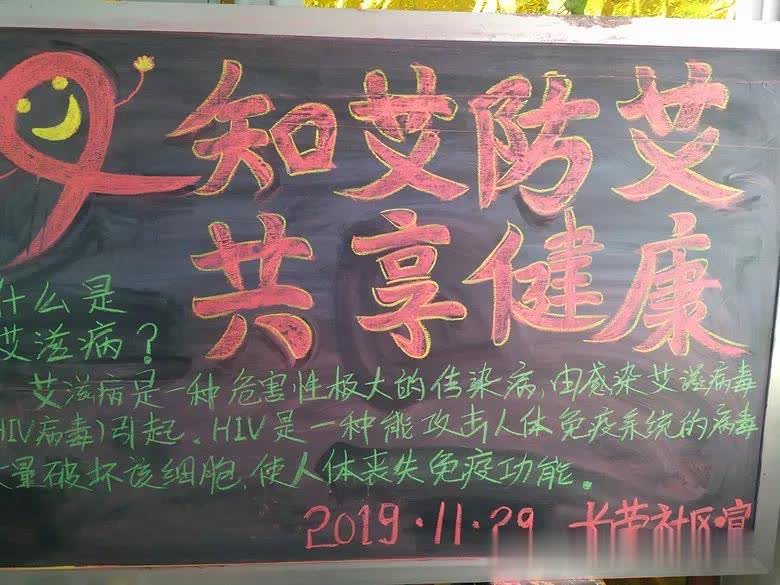 知艾防艾
共享健康
什么是
艾滋病？
艾滋病是一种危害性极大的传染病，由感染艾滋病毒
(HIV病毒)引起。HIV是一种能攻击人体免疫系统的病毒
大量破坏该细胞，使人体丧失免疫功能。
2019·11·29 社区·宣